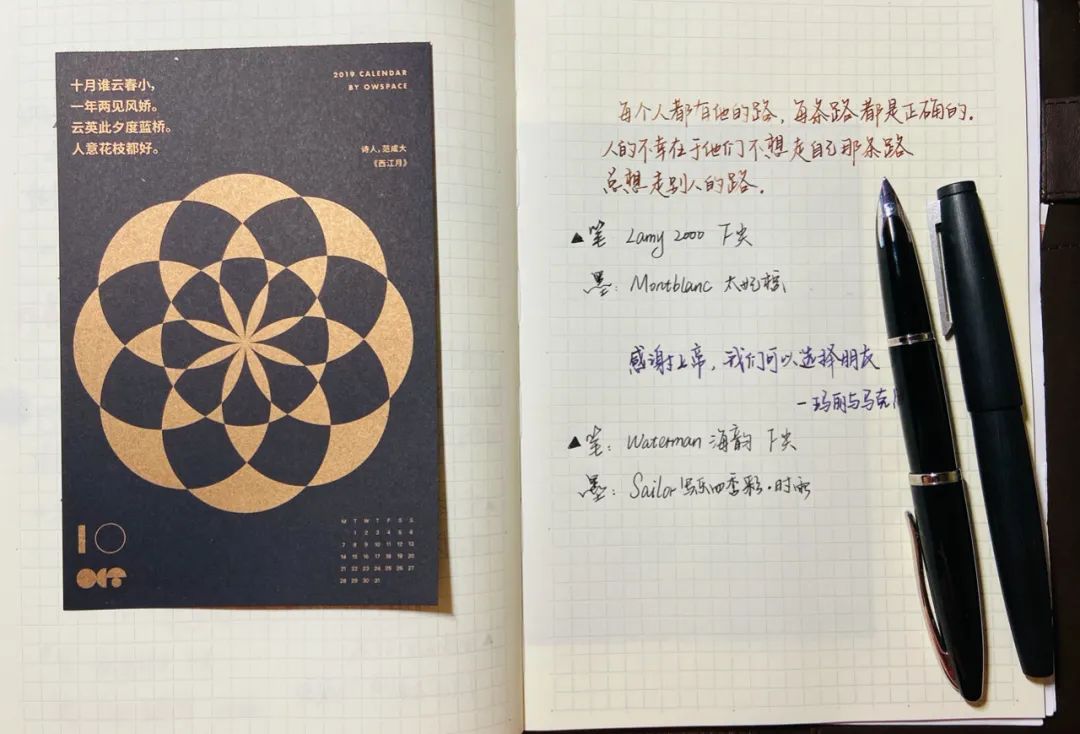 十月谁云春小，
一年两见风娇。
云英此夕度蓝桥。
人意花枝都好。
2019 CALENDAR
BY OWSPACE
诗人，范成大
《西江月》
10
OCT
M T W T F S S
1 2 3 4 5 6
7 8 9 10 11 12 13
14 15 16 17 18 19 20
21 22 23 24 25 26 27
28 29 30 31
每个人都有他的路，每条路都是正确的.
人的不幸在于他们不想走自己那条路
总想走别人的路.
▲笔 Lamy 2000 F尖
墨: Montblanc 太妃棕
感谢上帝, 我们可以选择朋友
－玛丽与马克
▲笔: Waterman 海韵 F尖
墨: Sailor 写乐四季彩·时雨